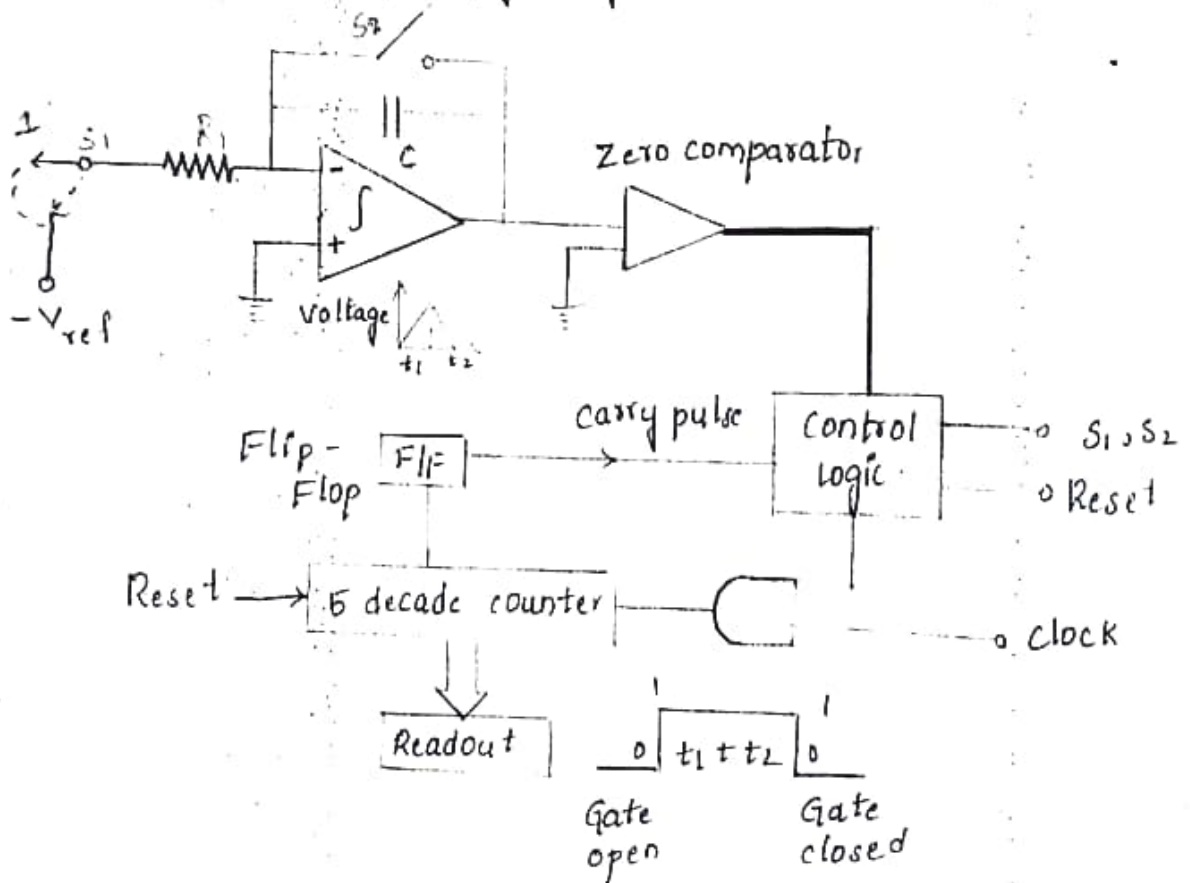 S2
1
S1
R1
C
-
∫
+
Zero comparator
-Vref
Voltage
t1 t2
Carry pulse
Control
Logic
S1, S2
Reset
Flip-
Flop
F/F
Reset
5 decade counter
Clock
Readout
1
0
t1 + t2
1
0
Gate
open
Gate
closed